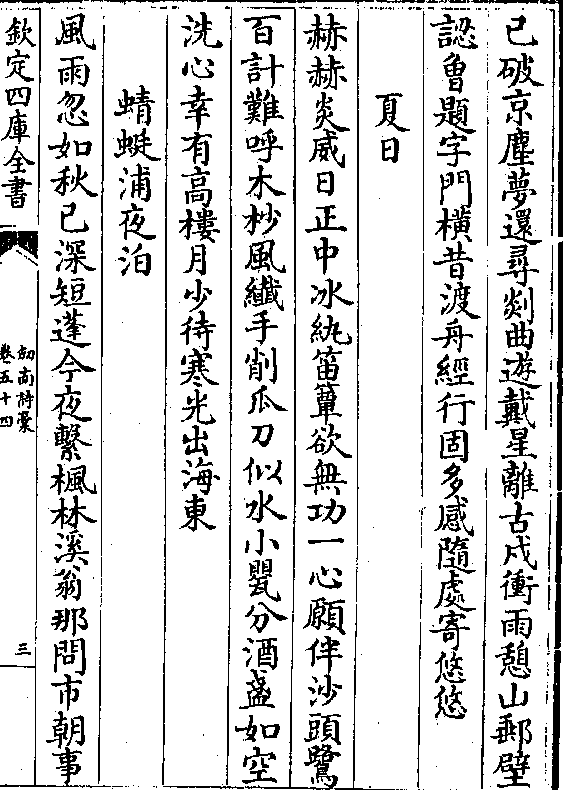 已破京塵夢還尋剡曲遊戴星離古戍衝雨憩山郵壁
認曾題字門橫昔渡舟經行固多感隨處寄悠悠
夏日
赫赫炎威日正中冰紈笛簟欲無功一心願伴沙頭鷺
百計難呼木杪風纖手削瓜刀似水小甖分酒盞如空
洗心幸有高樓月少待寒光出海東
蜻蜓浦夜泊
風雨忽如秋已深短蓬今夜繫楓林溪翁那問市朝事
欽定四庫全書
劍南詩稾
卷五十四
三